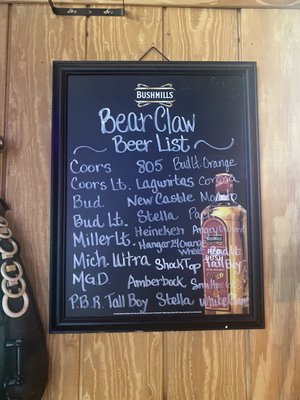 BUSHMILLS
Bear Claw
Beer List
Coors 805 Bud Lt. Orange
Coors Lt. Lagunitas Corona
Bud New Castle Modelo
Bud Lt. Stella Pacifico
Miller Lt. Heineken Angry Orchard
Hangar 24 Orange
Mich. Ultra Shock Top Tall Boy
M.G.D. Amberbock
P.B.R. Tall Boy Stella White Claw
BUSHMILLS
BUSH